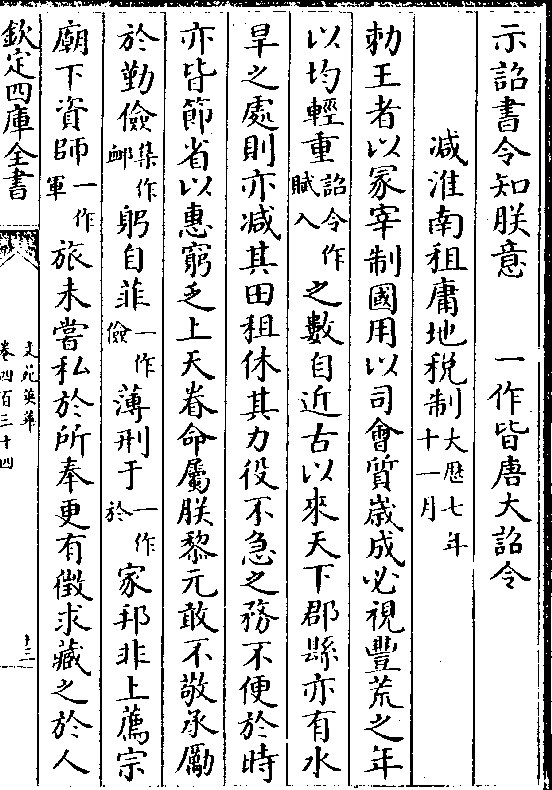 示詔書令知朕意　一作皆唐大詔令
減淮南租庸地税制大厯七年十一月
勑王者以冢宰制國用以司會質嵗成必視豐荒之年
以均輕重詔令作賦入之數自近古以來天下郡縣亦有水
旱之處則亦減其田租休其力役不急之務不便於時
亦皆節省以惠窮乏上天眷命屬朕黎元敢不敬承勵
於勤儉集作䘏躬自菲一作儉薄刑于一作於家邦非上薦宗
廟下資師一作軍旅未嘗私於所奉更有徵求藏之於人
欽定四庫全書
文苑英華
卷四百三十四
十三